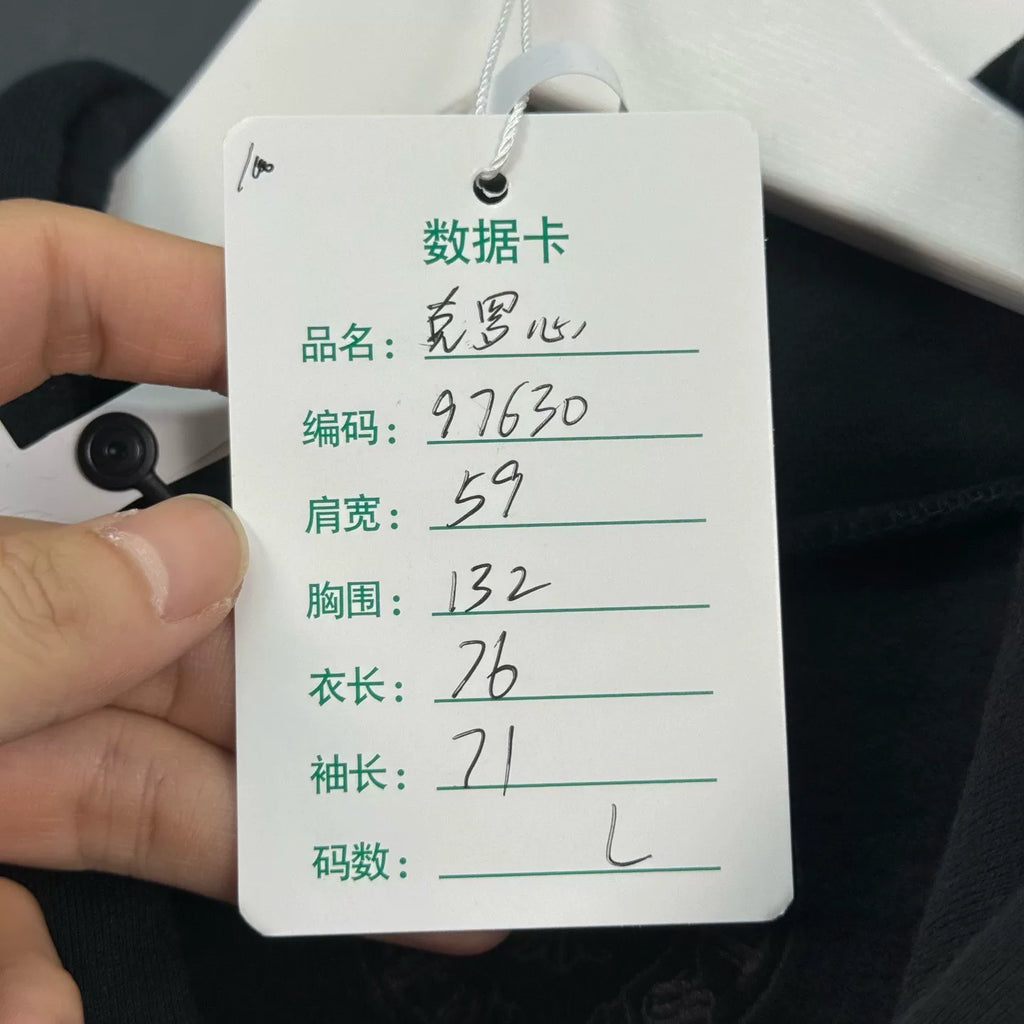 数据卡
品名: 克罗心
编码: 97630
肩宽: 59
胸围: 132
衣长: 76
袖长: 71
码数: L